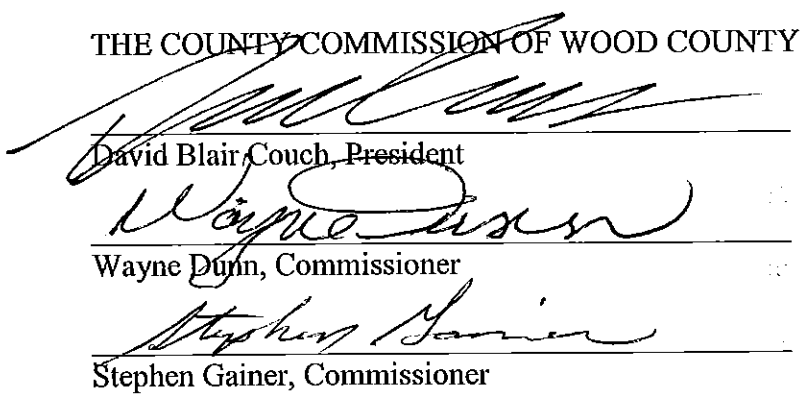 THE COUNTY COMMISSION OF WOOD COUNTY
David Blair Couch, President
Wayne Dunn
Wayne Dunn, Commissioner
Stephen Gainer
Stephen Gainer, Commissioner